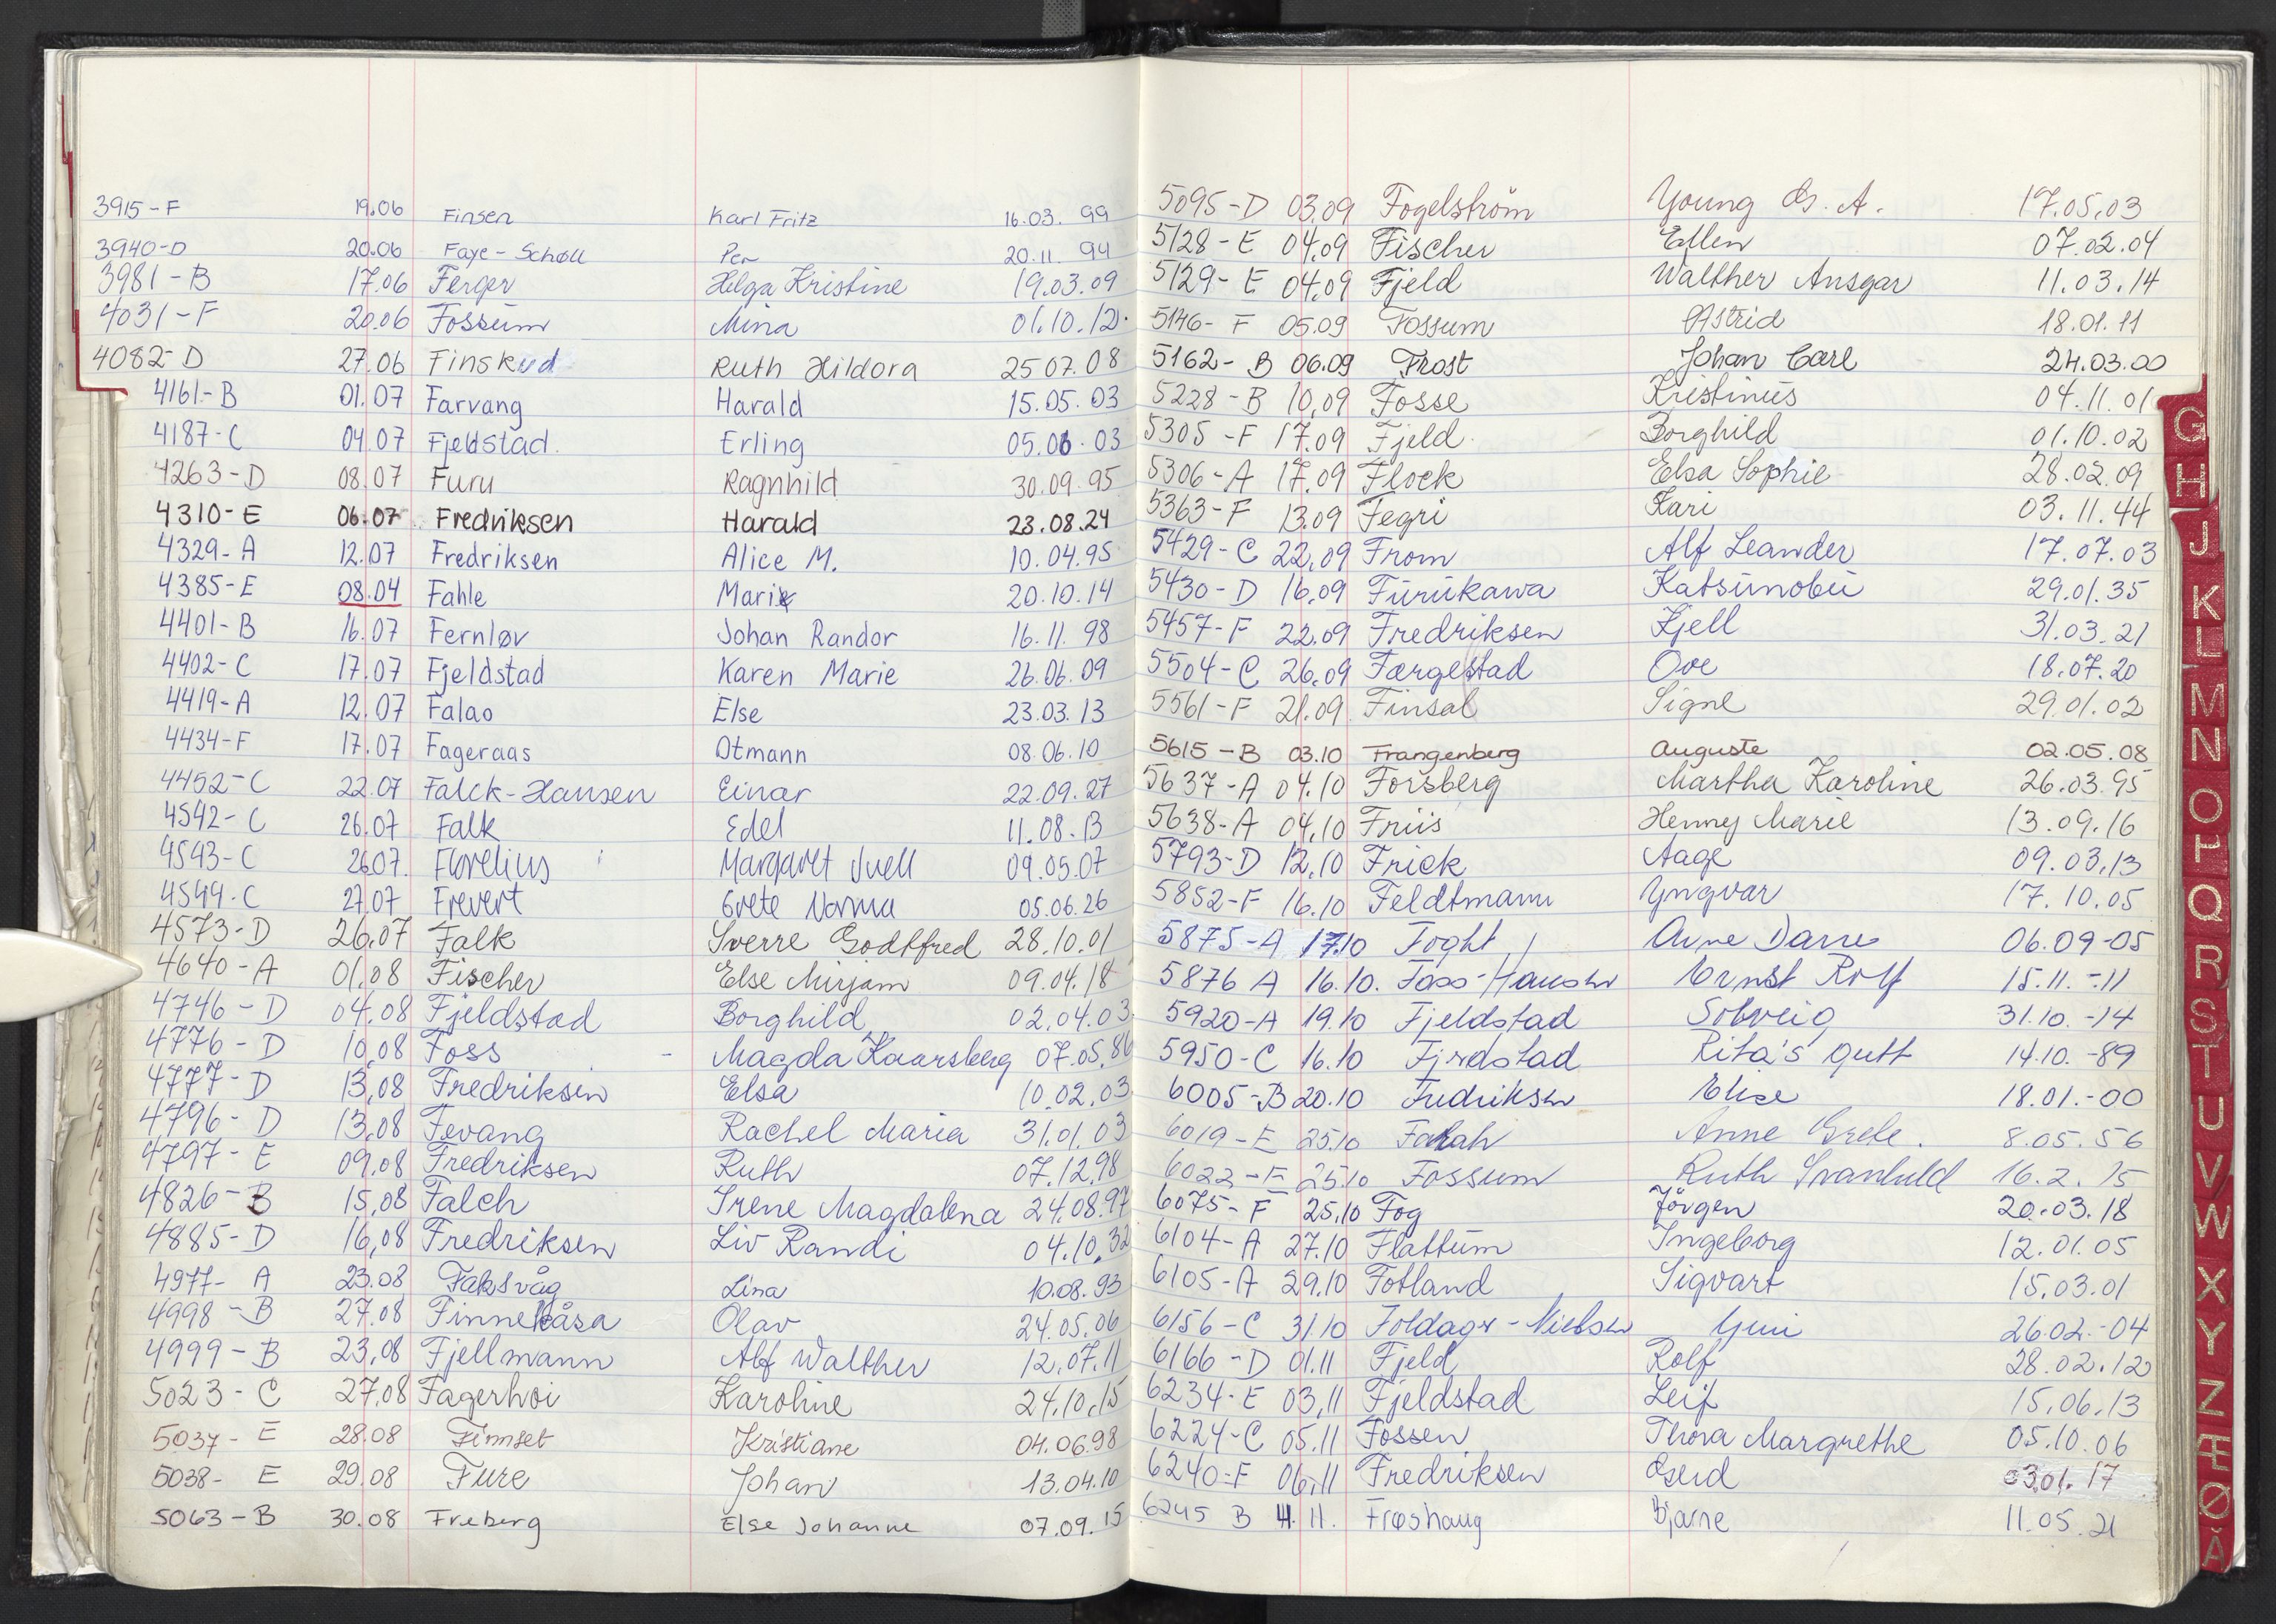 3915-F 19.06 Finsen Karl Fritz 16.03. 99
3940-D 20.06 Faye-Schøll Per 20.11. 94
3981-B 17.06 Ferger Helga Kristine 19.03.09
4031-F 20.06 Fossum Mina 01.10.12.
4082-D 27.06 Finskud Ruth Hildora 25 07.08
4161-B 01.07 Farvang Harald 15.05.03
4187-C 04.07 Fjeldstad. Erling 05.06.03
4263-D 08.07 Furu Ragnhild 30.09.95
4310-E 06.07 Fredriksen Harald 23.08.24
4329-A 12.07 Fredriksen Alice M. 10.04.95
4385-E 08.04 Fahle Marie 20.10.14
4401-B 16.07 Fernløv Johan Randor 16.11. 98
4402-C 17.07 Fjeldstad Karen Marie 26.06.09
4419-A 12.07 Falao Else 23.03.13
4434-F 17.07 Fageraas Otmann 08.06.10
4452-C 22.07 Falck-Hansen Einar 22.09.27
4542-C 26.07 Falk Edel 11.08.13
4543-C 2607. Florelius Margaret Juell 09.05.07
4544-C 27.07 Frevert Grete Norma 05.06.26
4573-D 26.07 Falk Sverre Godtfred 28.10.01
4640-A 01.08 Fischer Else Mirjam 09.04.18
4746-D 04.08 Fjeldstad Borghild 02.04.03
4776-D 10.08 Foss - Magda Kaarsberg 07.05.86
4777-D 13.08 Fredriksen Elsa 10.02.03
4796-D 13.08 Fevang Rachel Maria 31.01.03
4797-E 09.08 Fredriksen Ruth 07.12.98
4826-B 15.08 Falch Irene Magdalena 24.08.97
4885-D 16.08 Fredriksen Liv Randi 04.10.32
4977-A 23.08 Faksvåg Lina 10.08.93
4998-B 27.08 Finnekåsa Olav 24.05.06
4999-B 23.08 Fjellmann Alf Walther 12.07.11
5023-C 27.08 Fagerhoi Karoline 24.10.15
5037-E 28.08 Finnset Kristiane 04.06.98
5038-E 29.08 Fure Johan 13.04.10
5063-B 30.08 Freberg Else Johanne 07.09.15
5095-D 03.09 Fogelström Young G. A. 17.05.03
5128-E 04.09 Fischer Ellen 07.02.04
5129-E 04.09 Fjeld Walther Ansgar 11.03.14
5146-F 05.09 Fossum Astrid 18.01.11
5162-B 06.09 Frost Johan Carl 24.03.00
5228-B 10.09 Fosse Kristinus 04.11.01
5305-F 17.09 Fjeld. Borghild 01.10.02
5306-A 17.09 Flock Elsa Sophie 28.02.09
5363-F 13.09 Fegri Kari 03.11.44
5429-C 22.09 From Alf Leander 17.07.03
5430-D 16.09 Furukawa Katsunobu 29.01.35
5457-F 22.09 Fredriksen Kjell 31.03.21
5504-C 26.09 Færgestad Ove 18.07.20
5561-F 21.09 Finsal Signe 29.01.02
5615-B 03.10 Frangenberg Auguste 02.05.08
5637-A 04.10 Forsberg Martha Karoline 26.03.95
5638-A 04.10 Friis Henny Marie 13.09.16
5793-D 12.10 Frick Aage 09.03.13
5852-F 16.10 Feldtmann Yngvar 17.10.05
5875-A 17.10 Foght Arne Darre 06.09-05
5876 A 16.10. Foss-Hansen Ernst Rolf 15.11.-11
5920-A 19.10 Fjeldstad Solveig 31.10.-14
5950-C 16.10 Fjeldstad Rita's gutt 14.10.-89
6005-B 20.10 Fredriksen Elise 18.01.-00
6019-E 25.10 Farah Anne Grete. 8.05.56
6022-E 25.10 Fossum Ruth Svanhild 16.2.15
6075-F 25.10 Fog Jörgen 20.03.18
6104-A 27.10 Flattum Ingeborg 12.01.05
6105-A 29.10 Fotland Sigvart 15.03.01
6156-C 31.10 Foldager-Nielsen 26.02.-04
6166-D 01.11 Fjeld Rolf 28.02.12
6234-E 03.11 Fjeldstad Leif 15.06.13
6224-C 05.11 Fossen Thora Margrethe 05.10.06
6240-F 06.11 Fredriksen Gerd 03.01.17
6245 B 4.11. Frøshaug Bjarne 11.05.21
G
H
J
K
L
M
N
O
P
Q
R
S
T
U
V
W
X
Y
Z
Æ
Ø
Å